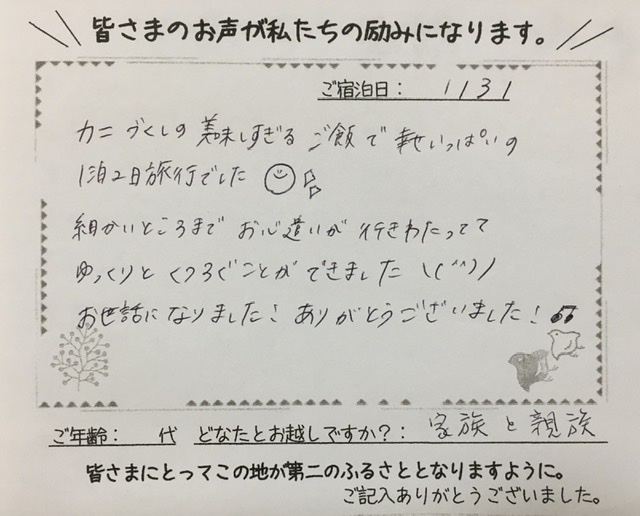 皆さまのお声が私たちの励みになります。
ご宿泊日： 1/31
カニづくしの美味しすぎるご飯で幸せいっぱいの
1泊2日旅行でした
細かいところまでお心遣いが行きわたってて
ゆっくりとくつろぐことができました \(^^)/
お世話になりました！ありがとうございました！♫
ご年齢： 代 どなたとお越しですか？： 家族と親族
皆さまにとってこの地が第二のふるさととなりますように。
ご記入ありがとうございました。